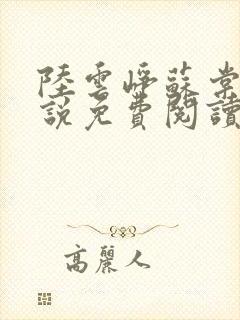 陸雲崢蘇棠
說免費閱讀
高麗人